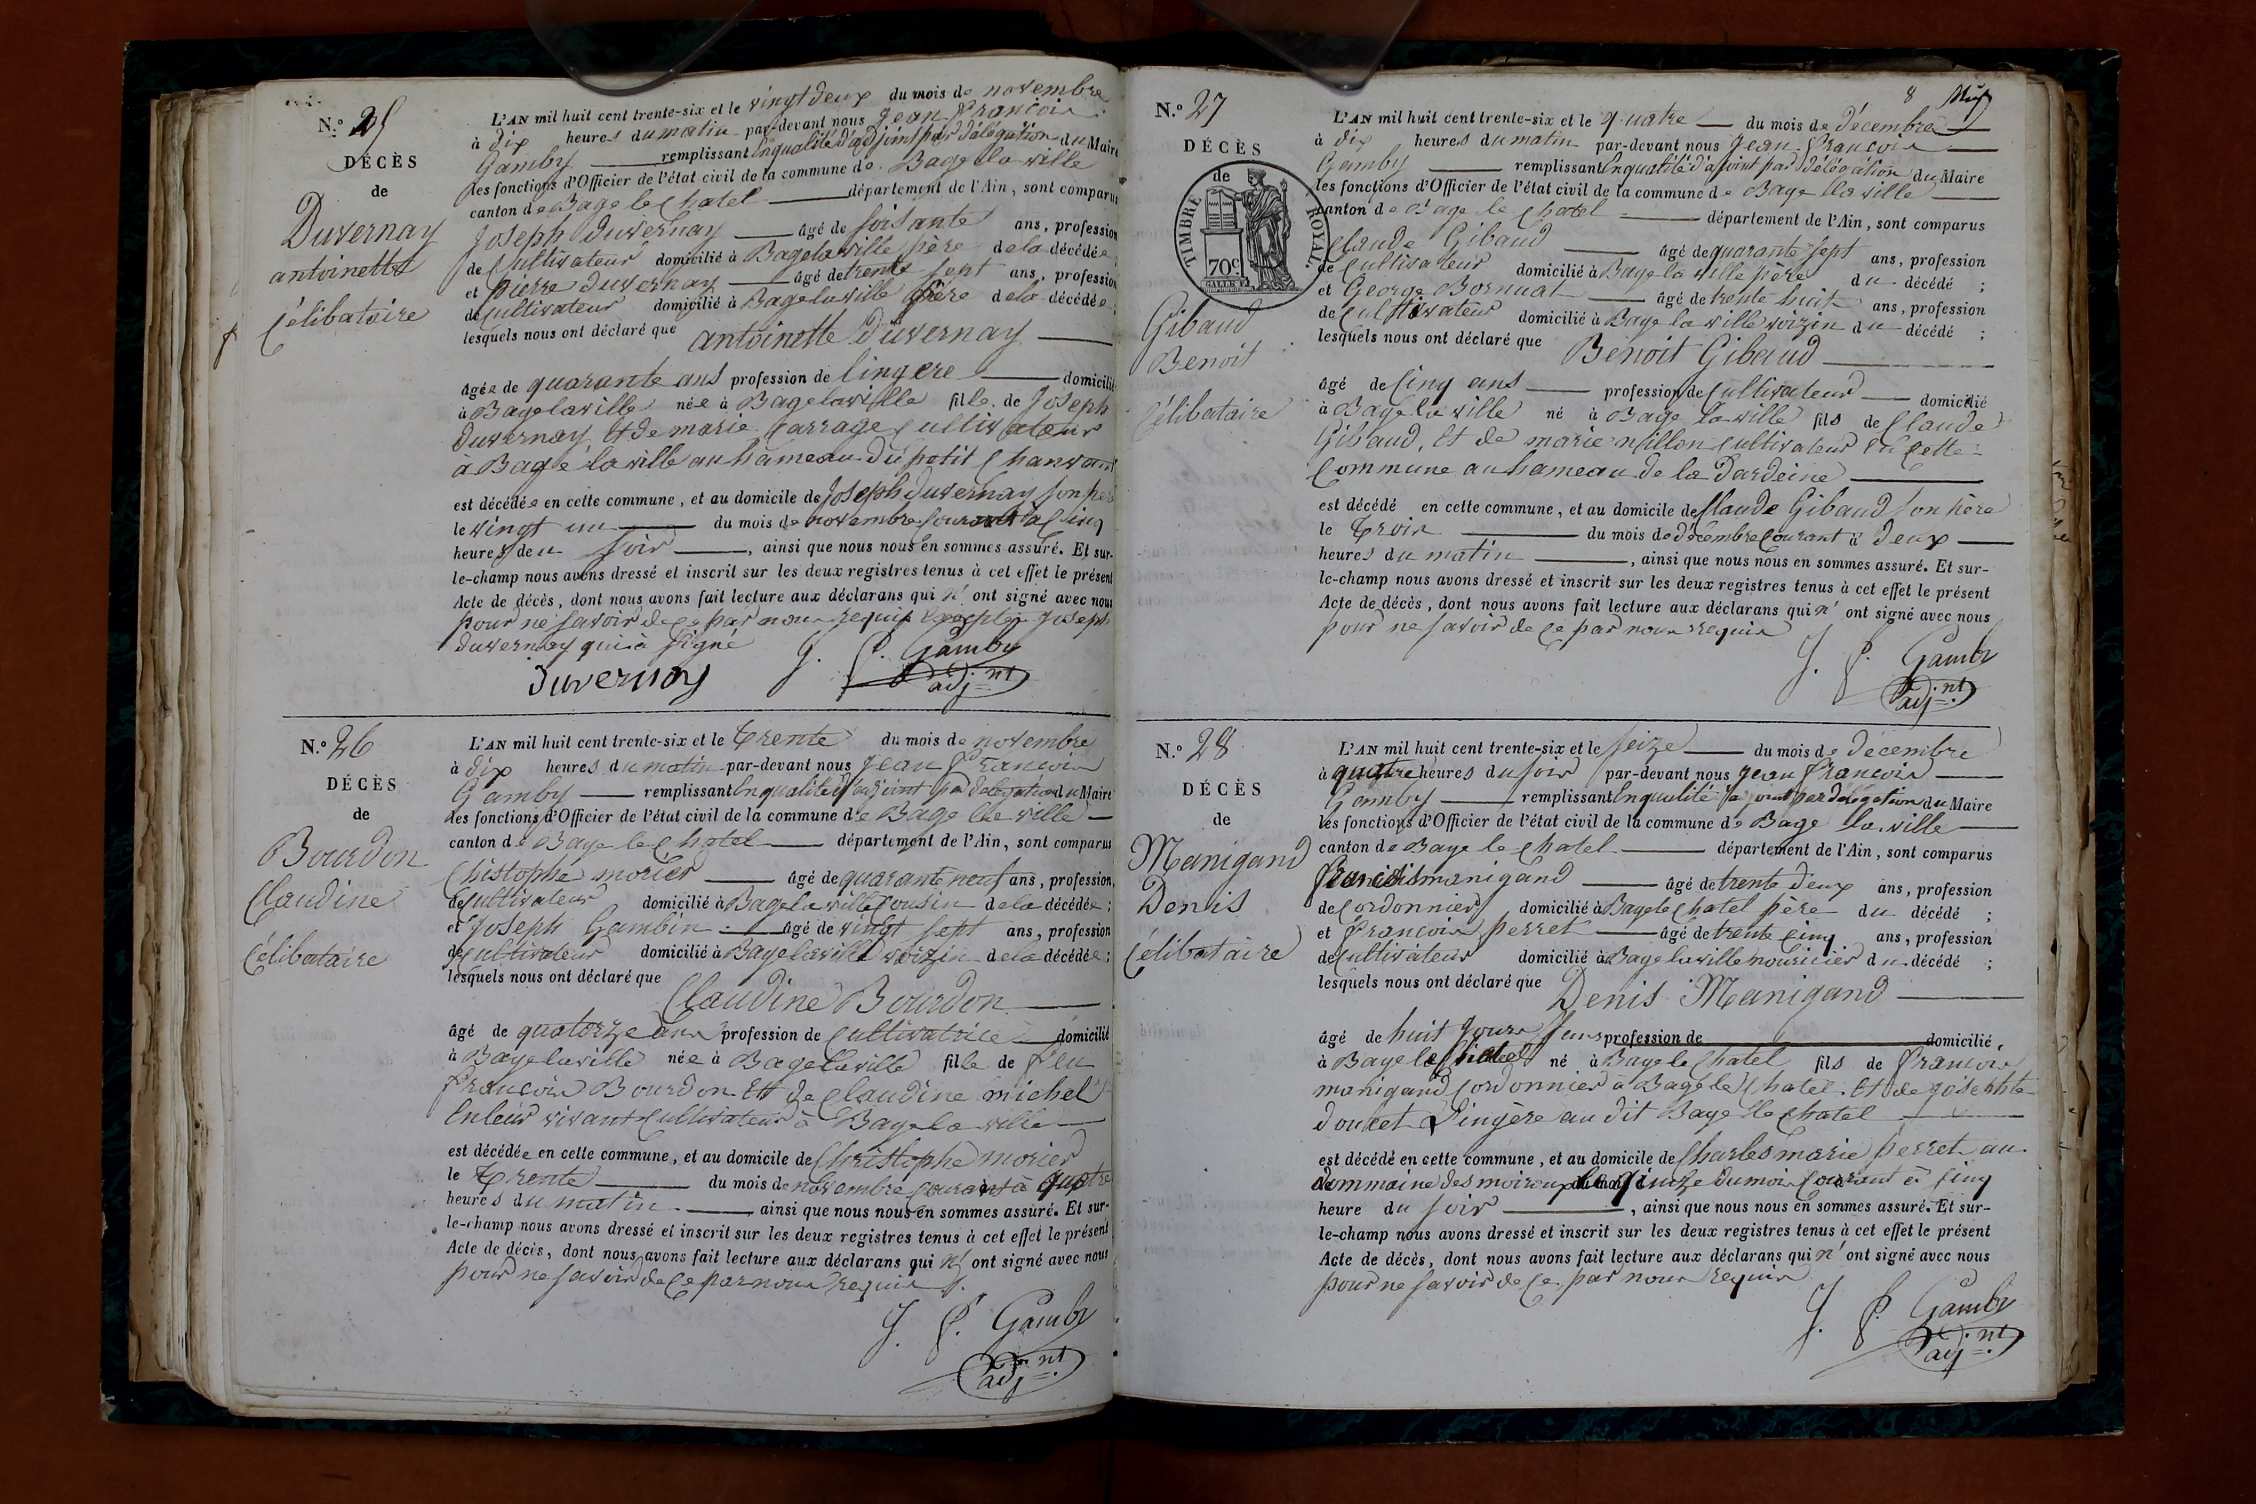 N.º 25
DÉCÈS
de
Duvernay
antoinette
Célibataire
L'AN mil huit cent trente-six et le vingt deux du mois de novembre
à dix heures du matin par-devant nous Jean François
Gamby remplissant Enqualité d'adjoint par délégation du Maire
les fonctions d'Officier de l'état civil de la commune de Bage la ville
canton de Bage le Chatel département de l'Ain, sont comparus
Joseph Duvernay âgé de soisante ans, profession
de Cultivateur domicilié à Bage la ville père de la décédée
et pierre Duvernay âgé de trente sept ans, profession
de Cultivateur domicilié à Bage la ville frère de la décédée
lesquels nous ont déclaré que antoinette Duvernay
âgée de quarante ans profession de lingere domicilié
à Bage la ville née à Bage la ville fille de Joseph
Duvernay Et de marie Carrage Cultivateur
à Bagé la ville au hameau du petit Chanvant
est décédée en cette commune, et au domicile de Joseph Duvernay son père
le vingt un du mois de novembre Courant à Cinq
heures du soir, ainsi que nous nous en sommes assuré. Et sur-
le-champ nous avons dressé et inscrit sur les deux registres tenus à cet effet le présent
Acte de décès, dont nous avons fait lecture aux déclarans qui n' ont signé avec nous
pour ne savoir de ce par nous requis Excepter Joseph
Duvernay qui à signé
Duvernay J. F. Gamby
adj.nt
N.º 26
DÉCÈS
de
Bourdon
Claudine
Célibataire
L'AN mil huit cent trente-six et le trente du mois de novembre
à dix heures du matin par-devant nous Jean François
Gamby remplissant Enqualité d'adjoint par délégation du Maire
les fonctions d'Officier de l'état civil de la commune de Bage la ville
canton de Bage le Chatel département de l'Ain, sont comparus
Chistophe morier âgé de quarante neuf ans, profession
de Cultivateur domicilié à Bage la ville Cousin de la décédée;
et Joseph Gambin âgé de vingt sept ans, profession
de Cultivateur domicilié à Bage la ville voizin de la décédée;
lesquels nous ont déclaré que
Claudine Bourdon
âgé de quatorze ans profession de Cultivatrice domicilié
à Bage la ville née à Bage la ville fille de feu
François Bourdon Et de Claudine michel
En leur vivant Cultivateur à Bage la ville
est décédée en cette commune, et au domicile de Christophe morier
le trente du mois de novembre Courant à quatre
heures du matin, ainsi que nous nous en sommes assuré. Et sur-
le-champ nous avons dressé et inscrit sur les deux registres tenus à cet effet le présent
Acte de décès, dont nous avons fait lecture aux déclarans qui n' ont signé avec nous
pour ne savoir de ce par nous requis
J. F. Gamby
adj.nt
8
N.º 27
DÉCÈS
de
TIMBRE ROYAL.
70c
Gibaud
Benoit
Célibataire
L'AN mil huit cent trente-six et le quatre du mois de décembre
à dix heures du matin par-devant nous Jean François
Gamby remplissant Enqualité d'ajoint par délégation du Maire
les fonctions d'Officier de l'état civil de la commune de Bage la ville
canton de Bage le Chatel département de l'Ain, sont comparus
Claude Gibaud âgé de quarante sept ans, profession
de Cultivateur domicilié à Bage la ville père du décédé;
et George Bornuat âgé de trente huit ans, profession
de Cultivateur domicilié à Bage la ville voizin du décédé;
lesquels nous ont déclaré que
Benoit Gibaud
âgé de Cinq ans profession de Cultivateur domicilié
à Bage la ville né à Bage la ville fils de Claude
Gibaud, Et de marie millon Cultivateur En Cette
Commune au hameau de la Dardeine
est décédé en cette commune, et au domicile de Claude Gibaud son père
le trois du mois de décembre Courant à deux
heures du matin, ainsi que nous nous en sommes assuré. Et sur-
le-champ nous avons dressé et inscrit sur les deux registres tenus à cet effet le présent
Acte de décès, dont nous avons fait lecture aux déclarans qui n' ont signé avec nous
pour ne savoir de ce par nous requis
J. F. Gamby
adj.nt
N.º 28
DÉCÈS
de
Manigand
Denis
Célibataire
L'AN mil huit cent trente-six et le seize du mois de décembre
à quatre heures du soir par-devant nous Jean François
Gamby remplissant Enqualité d'ajoint par délégation du Maire
les fonctions d'Officier de l'état civil de la commune de Bage la ville
canton de Bage le Chatel département de l'Ain, sont comparus
francois manigand âgé de trente deux ans, profession
de Cordonnier domicilié à Bage le Chatel père du décédé;
et François perret âgé de trente cinq ans, profession
de Cultivateur domicilié à Bage la ville nouricier du décédé;
lesquels nous ont déclaré que
Denis Manigand
âgé de huit Jours sans profession de domicilié
à Bage le Chatel né à Bage le Chatel fils de François
manigand Cordonnier à Bage le Chatel Et de
doucet Lingère au dit Bage le Chatel
est décédé en cette commune, et au domicile de Charles marie perret au
dommaine des moiroux le quinze du mois Courant à Cinq
heure du soir, ainsi que nous nous en sommes assuré. Et sur-
le-champ nous avons dressé et inscrit sur les deux registres tenus à cet effet le présent
Acte de décès, dont nous avons fait lecture aux déclarans qui n' ont signé avec nous
pour ne savoir de ce par nous requis
J. F. Gamby
adj.nt